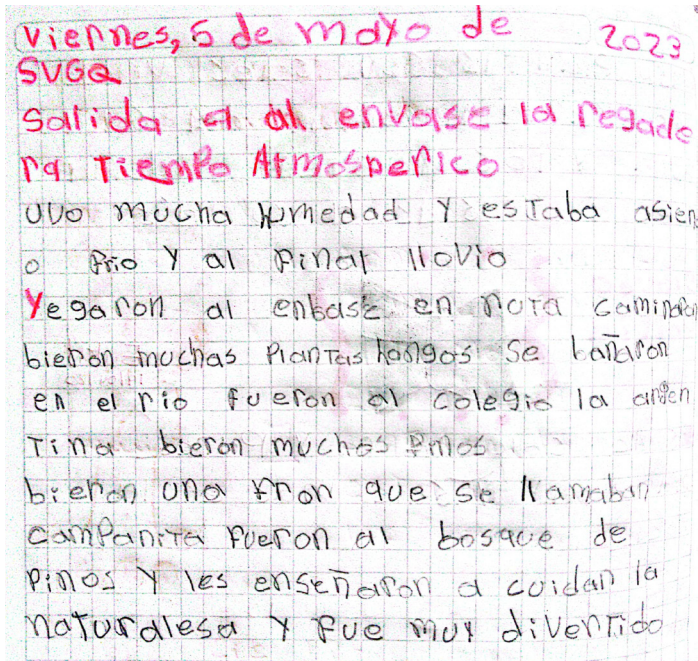 Viernes, 5 de mayo de 2023
SVGQ
Salida a al envase la regade
ra Tiempo Atmosperico
uvo mucha humedad y estaba asien
o frio y al final llovio
Yegaron al enbase en nota caminaron
bieron muchas Plantas hongos se bañaron
en el rio fueron al colegio la argen
Tina bieron muchos Pinos
bieron una fron que se llamaban
campanita fueron al bosque de
Pinos y les enseñaron a cuidan la
naturalesa y fue muy divertido